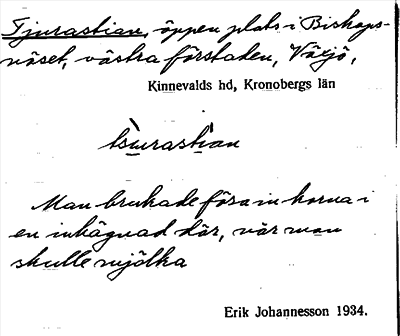 Tjurastian, öppen plats i Biskops-
näset, västra förstaden, Växjö,
Kinnevalds hd, Kronobergs län
Man brukade fösa in korna i
en inhägnad där, när man
skulle mjölka
Erik Johannesson 1934.